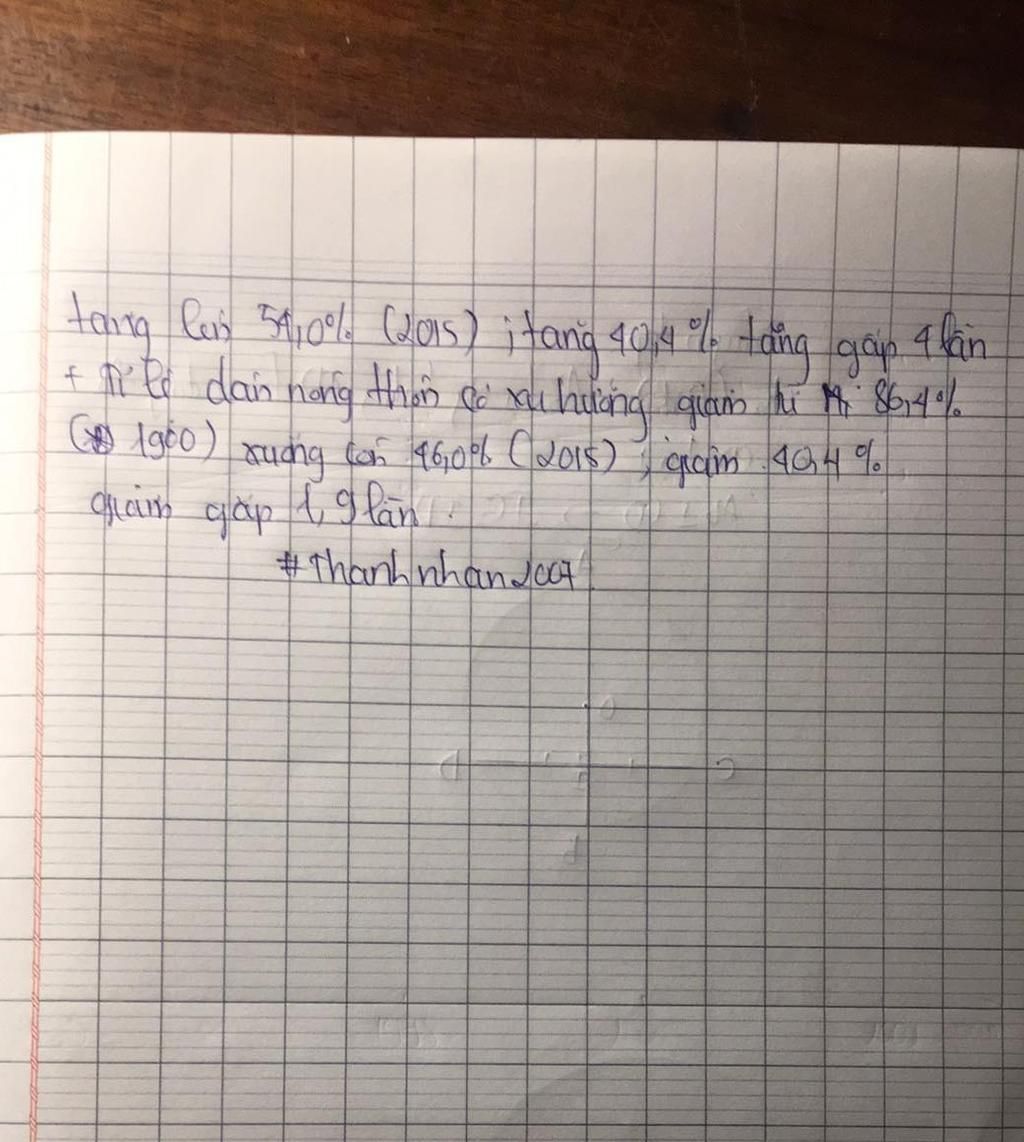 tăng lên 54,0% (2015) ; tăng 40,4% tăng gấp 4 lần
+ Tỉ lệ dân nông thôn có xu hướng giảm từ 86,4%
( 1900) xuống còn 46,0% (2015) ; giảm 40,4%
giảm gấp 1,9 lần.
#Thanhnhan2007